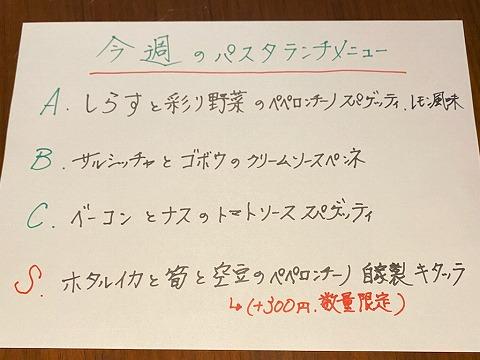 今週のパスタランチメニュー
A. しらすと彩り野菜のペペロンチーノスパゲッティ.レモン風味
B. サルシッチャとゴボウのクリームソースペンネ
C. ベーコンとナスのトマトソーススパゲッティ
S. ホタルイカと筍と空豆のペペロンチーノ 自家製キタッラ
↳(+300円.数量限定)